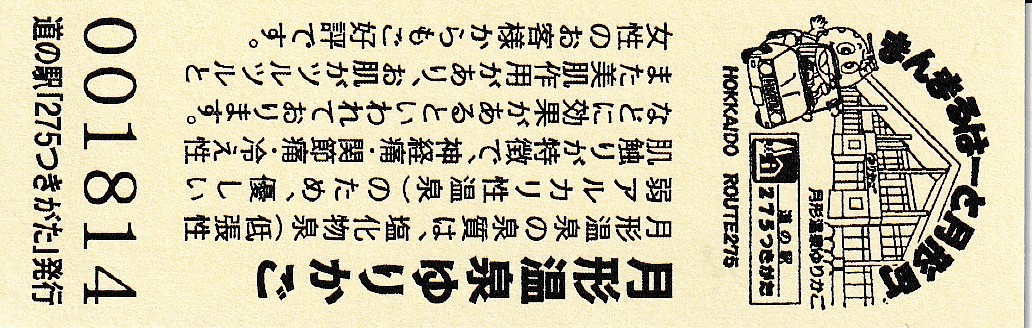 月形温泉ゆりかご
月形温泉の泉質は、塩化物泉（低張性
弱アルカリ性温泉）のため、優しい
肌触りが特徴で、神経痛・関節痛・冷え性
などに効果があるといわれております。
また美肌作用があり、お肌がツルツルと
女性のお客様からもご好評です。
001814
道の駅「275つきがた」発行
まんまるはーと月形町
HOKKAIDO ROUTE275
道の駅
275つきがた
月形温泉ゆりかご